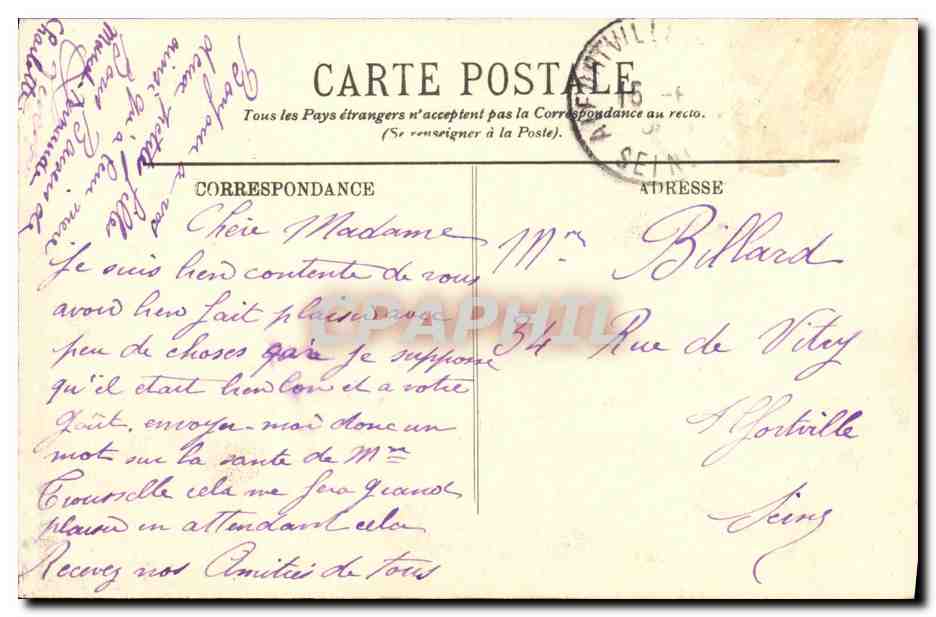 CARTE POSTALE
Tous les Pays étrangers n'acceptent pas la Correspondance au recto.
(Se renseigner à la Poste).
CORRESPONDANCE
ADRESSE
ALFORTVILLE
15
SEINE
Bonjour a vos
deux petites filles
ainsi qu'a leur mere
Bons Baisers de
Charlotte
Chère Madame
Je suis bien contente de vous
avoir bien fait plaisir avec
peu de choses qu'a je suppose
qu'il était bien bon et a votre
goût, envoyer-moi donc un
mot sur la santé de Mme
Trousselle cela me fera grand
plaisir en attendant cela
Recevez nos Amitiés de tous
Mme Billard
34 Rue de Vitry
Alfortville
Seine
CPAPHIL